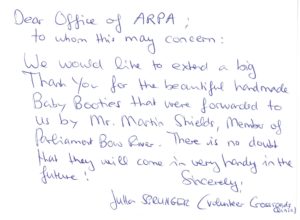 Dear Office of ARPA;
to whom this may concern:
We would like to extend a big
Thank You for the beautiful handmade
Baby Booties that were forwarded to
us by Mr. Martin Shields, Member of
Parliament Bow River. There is no doubt
that they will come in very handy in the
future!
Sincerely,
Jutta (Volunteer Crossroads
Clinic)